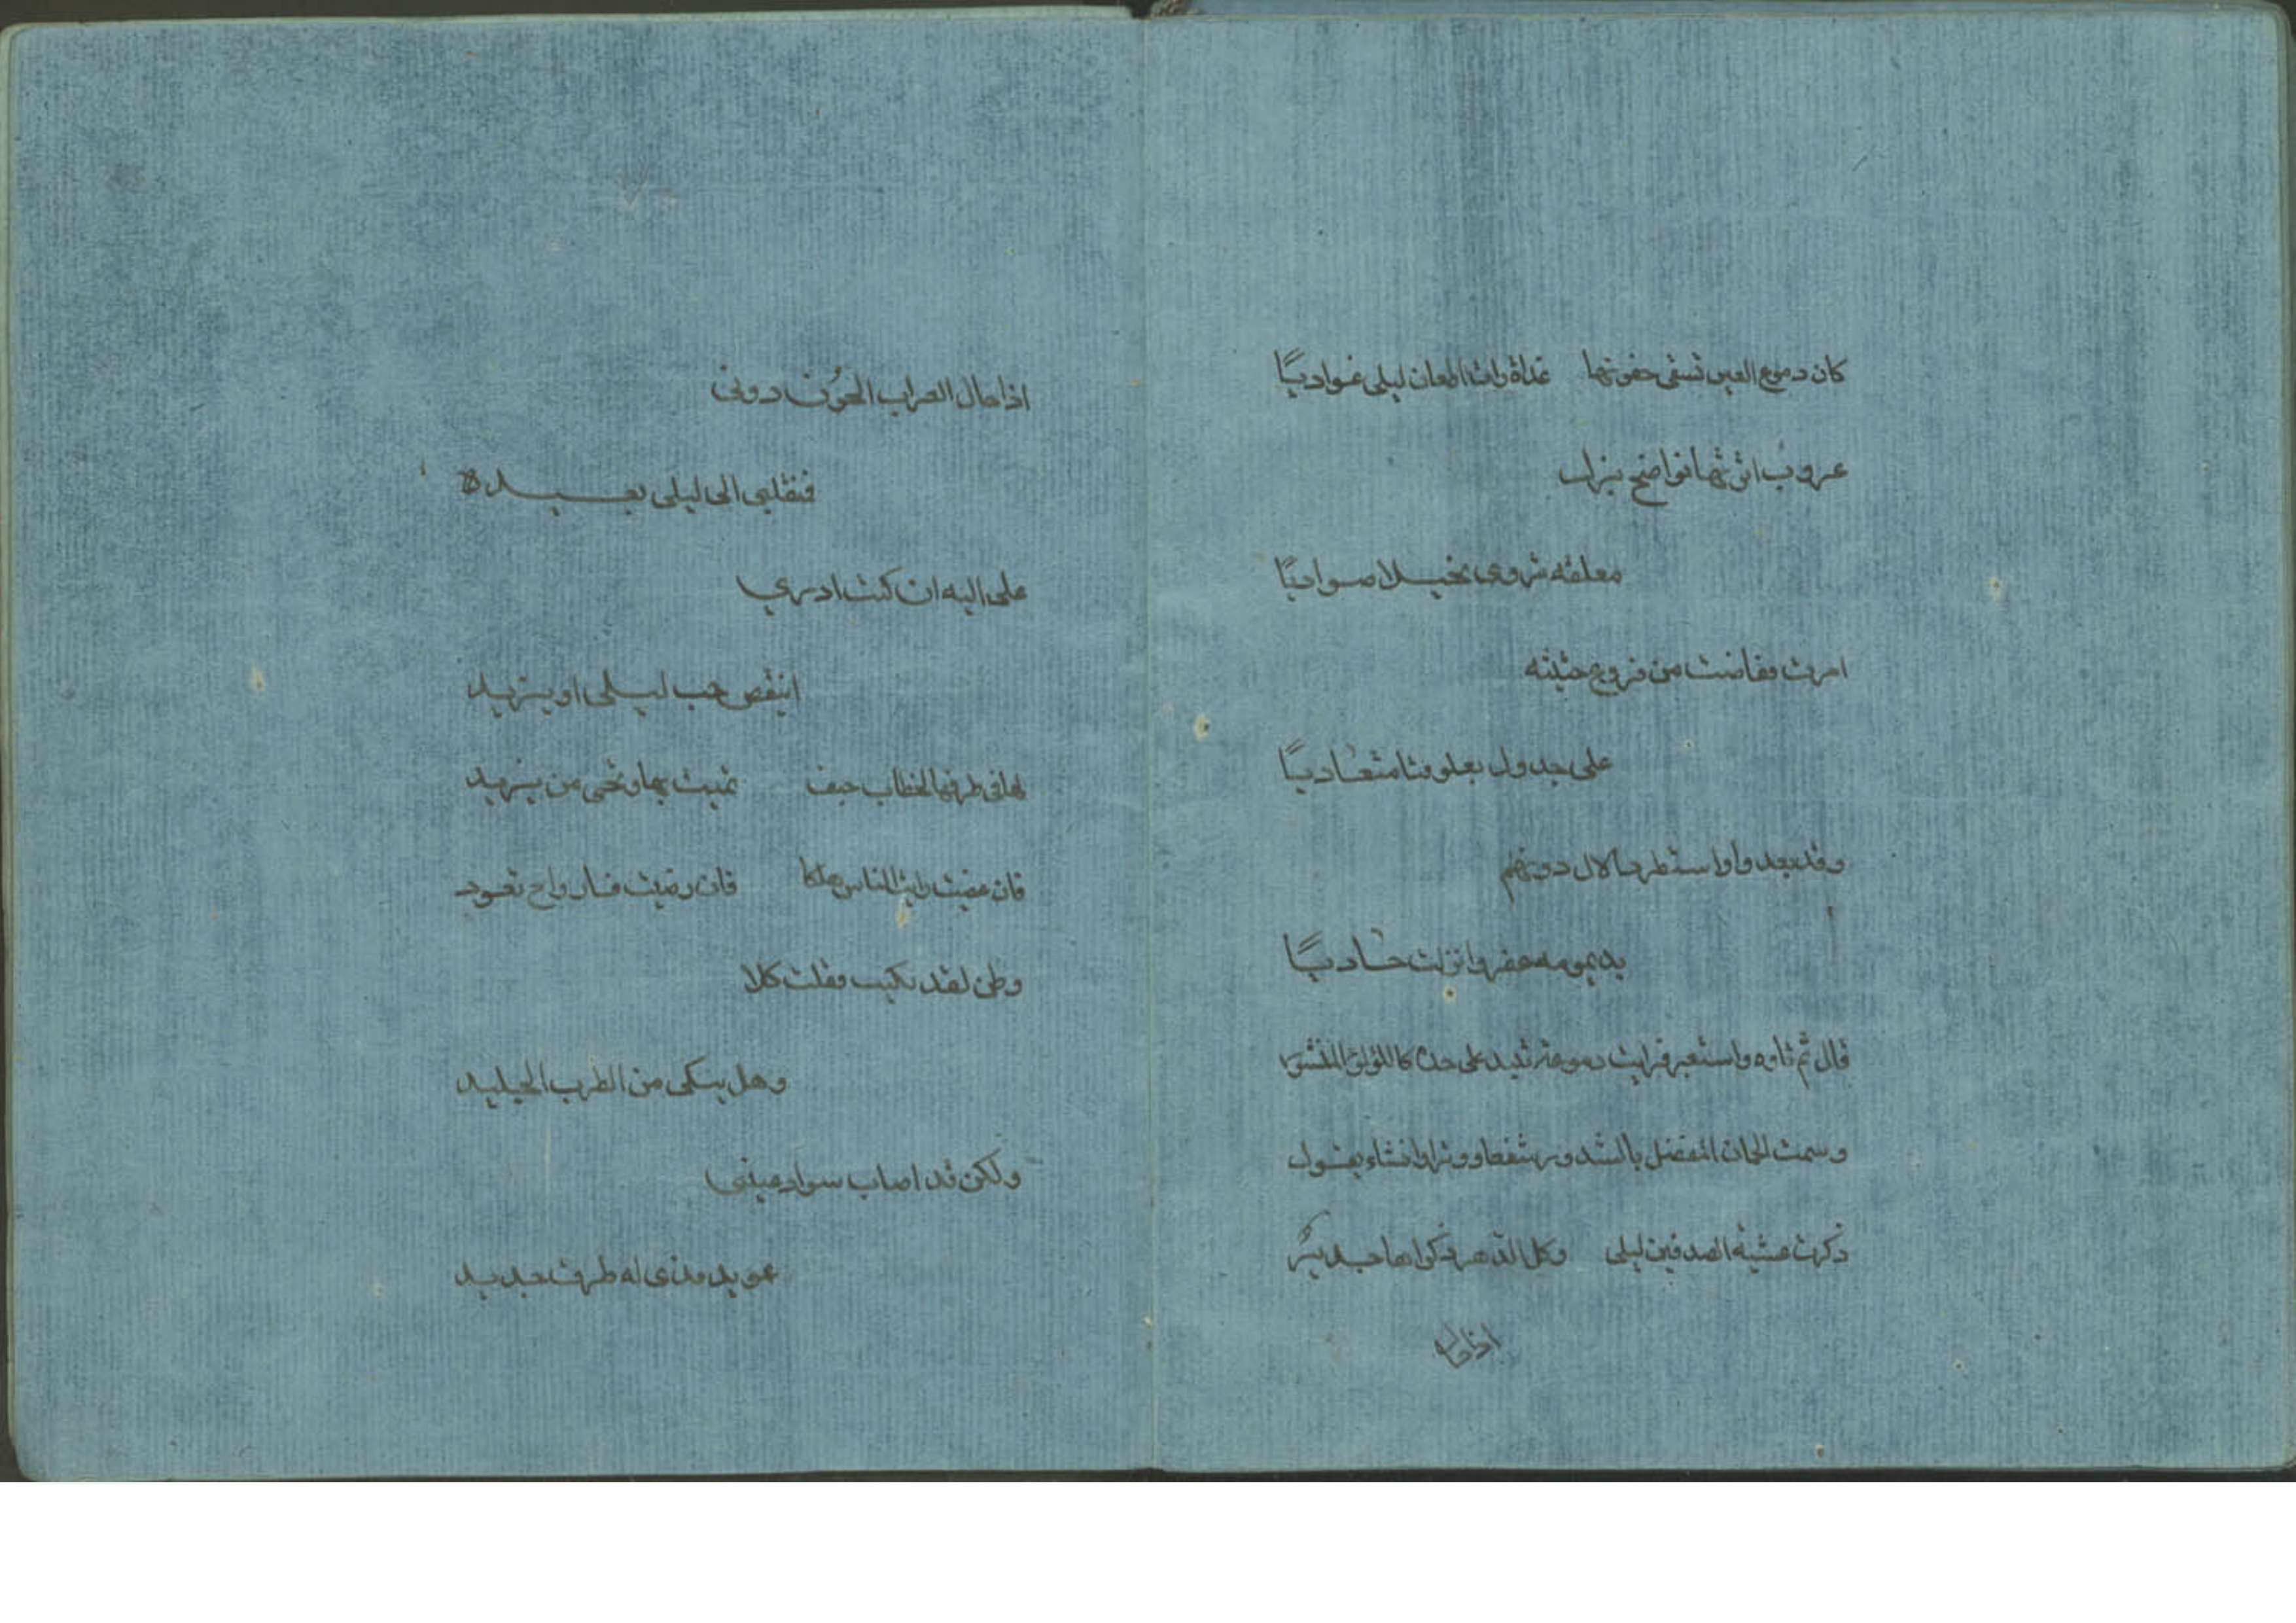 كان دموع العين تسقى جفونها غداة رات اظعان ليلى غواديًا
عروب اترتها نواضح بزل
معلقه تروى نخيلا صواديًا
امرت ففاضت من فروع حثيثه
على جدول يعلو متعاديًا
وقد بعدوا واستطرد الال دونهم
بديمومه قفر وانزلت حاديًا
قال ثم تاوه واستعبر فرايت دموعه على خده كاللولو المنثور
وانشاء يقول
ذكرت عشيه الصدفين ليلى وكل الدهر ذكراها جديد
اذا حال
اذا حال الغراب الجون دونى
فنقلبى الى ليلى بعيده
على اليه ان كنت ادرى
اينقص حب ليلى او يزيد
لها فى طرفها حتف تميت بها وتحى من يزيد
فان غضبت رايت الناس هلكا فان رضيت فارواح تعود
وظن لقد بكيت فقلت كلا
وهل يبكى من الطرب الجليد
ولكن قد اصاب سواد عينى
عويد قذى له طرف حديد